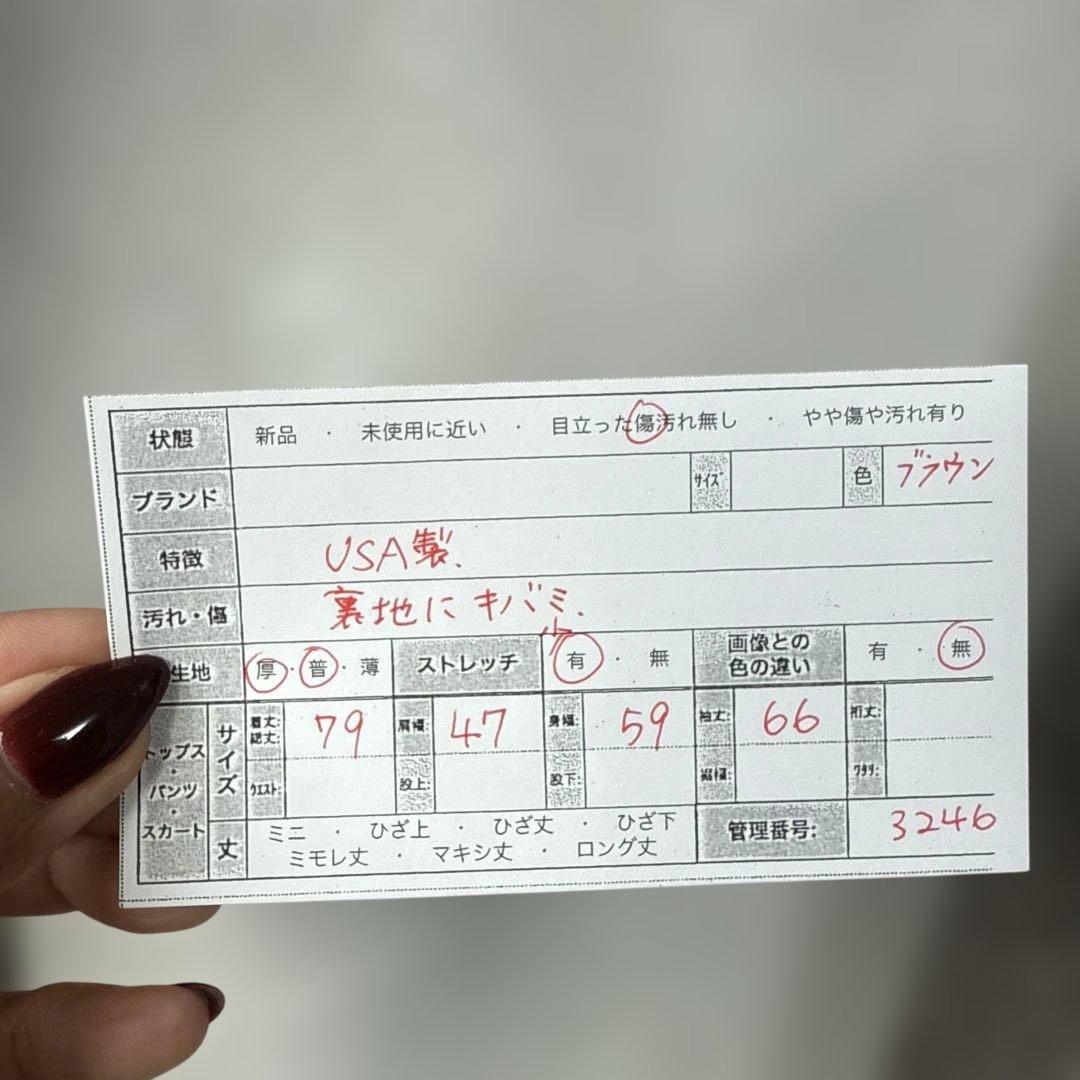 状態 新品 ・ 未使用に近い ・ 目立った傷汚れ無し ・ やや傷や汚れ有り
ブランド サイズ 色 ブラウン
特徴 USA製.
汚れ・傷 裏地にキバミ.
生地 厚・普・薄 ストレッチ 少 有 ・ 無 画像との色の違い 有 ・ 無
トップス・パンツ・スカート サイズ 着丈:総丈: 79 肩幅: 47 身幅: 59 袖丈: 66 裄丈:
ウエスト: 股上: 股下: 裾幅: ワタリ:
丈 ミニ ・ ひざ上 ・ ひざ丈 ・ ひざ下 管理番号: 3246
ミモレ丈 ・ マキシ丈 ・ ロング丈